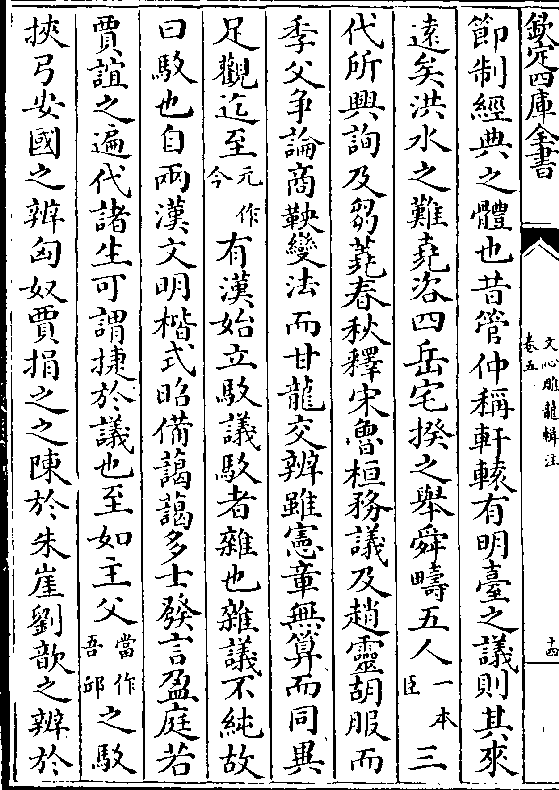 欽定四庫全書
文心雕龍輯注
卷五
十四
節制經典之體也昔管仲稱軒轅有明臺之議則其來
遠矣洪水之難堯咨四岳宅揆之舉舜疇五人一本臣三
代所興詢及芻蕘春秋釋宋魯桓務議及趙靈胡服而
季父爭論商鞅變法而甘龍交辨雖憲章無算而同異
足觀迄至元作今有漢始立駮議駮者雜也雜議不純故
曰駮也自兩漢文明楷式昭備藹藹多士發言盈庭若
賈誼之遍代諸生可謂捷於議也至如主父當作吾邱之駮
挾弓安國之辨匈奴賈捐之之陳於朱崖劉歆之辨於